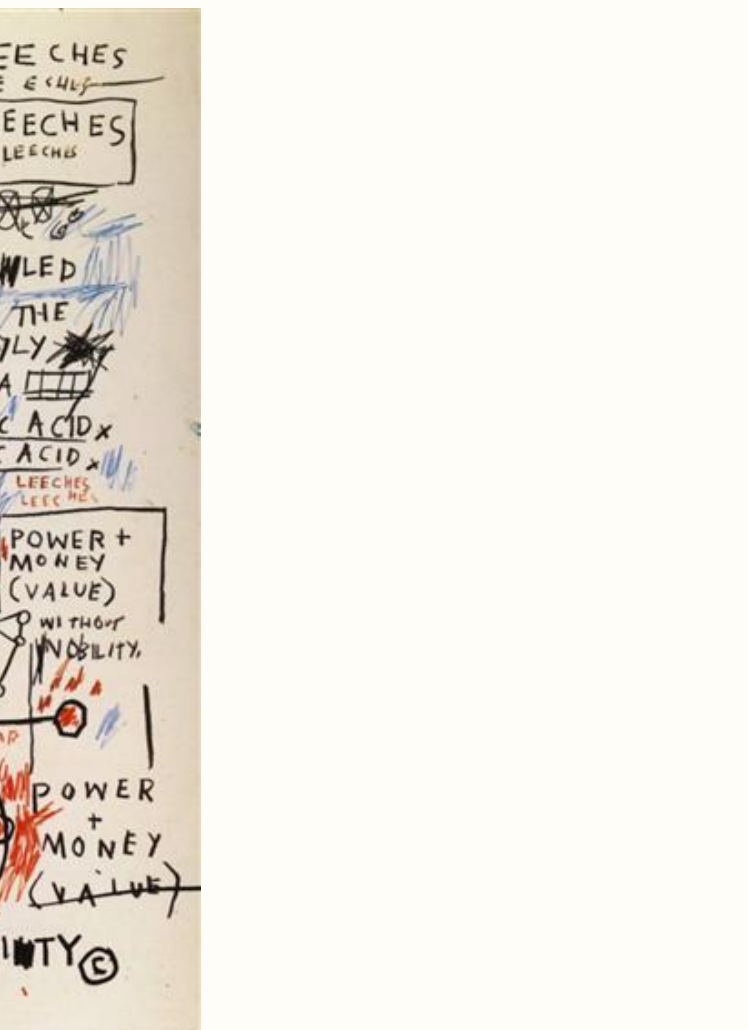 EECHES
E ECHES
EECHES
LEECHES
WLED
THE
YLY
A
C ACID x
C ACID x
LEECHES
LEECHES
POWER +
MONEY
(VALUE)
WITHOUT
NOBILITY.
AR
POWER
+
MONEY
(VALUE)
NTY ©